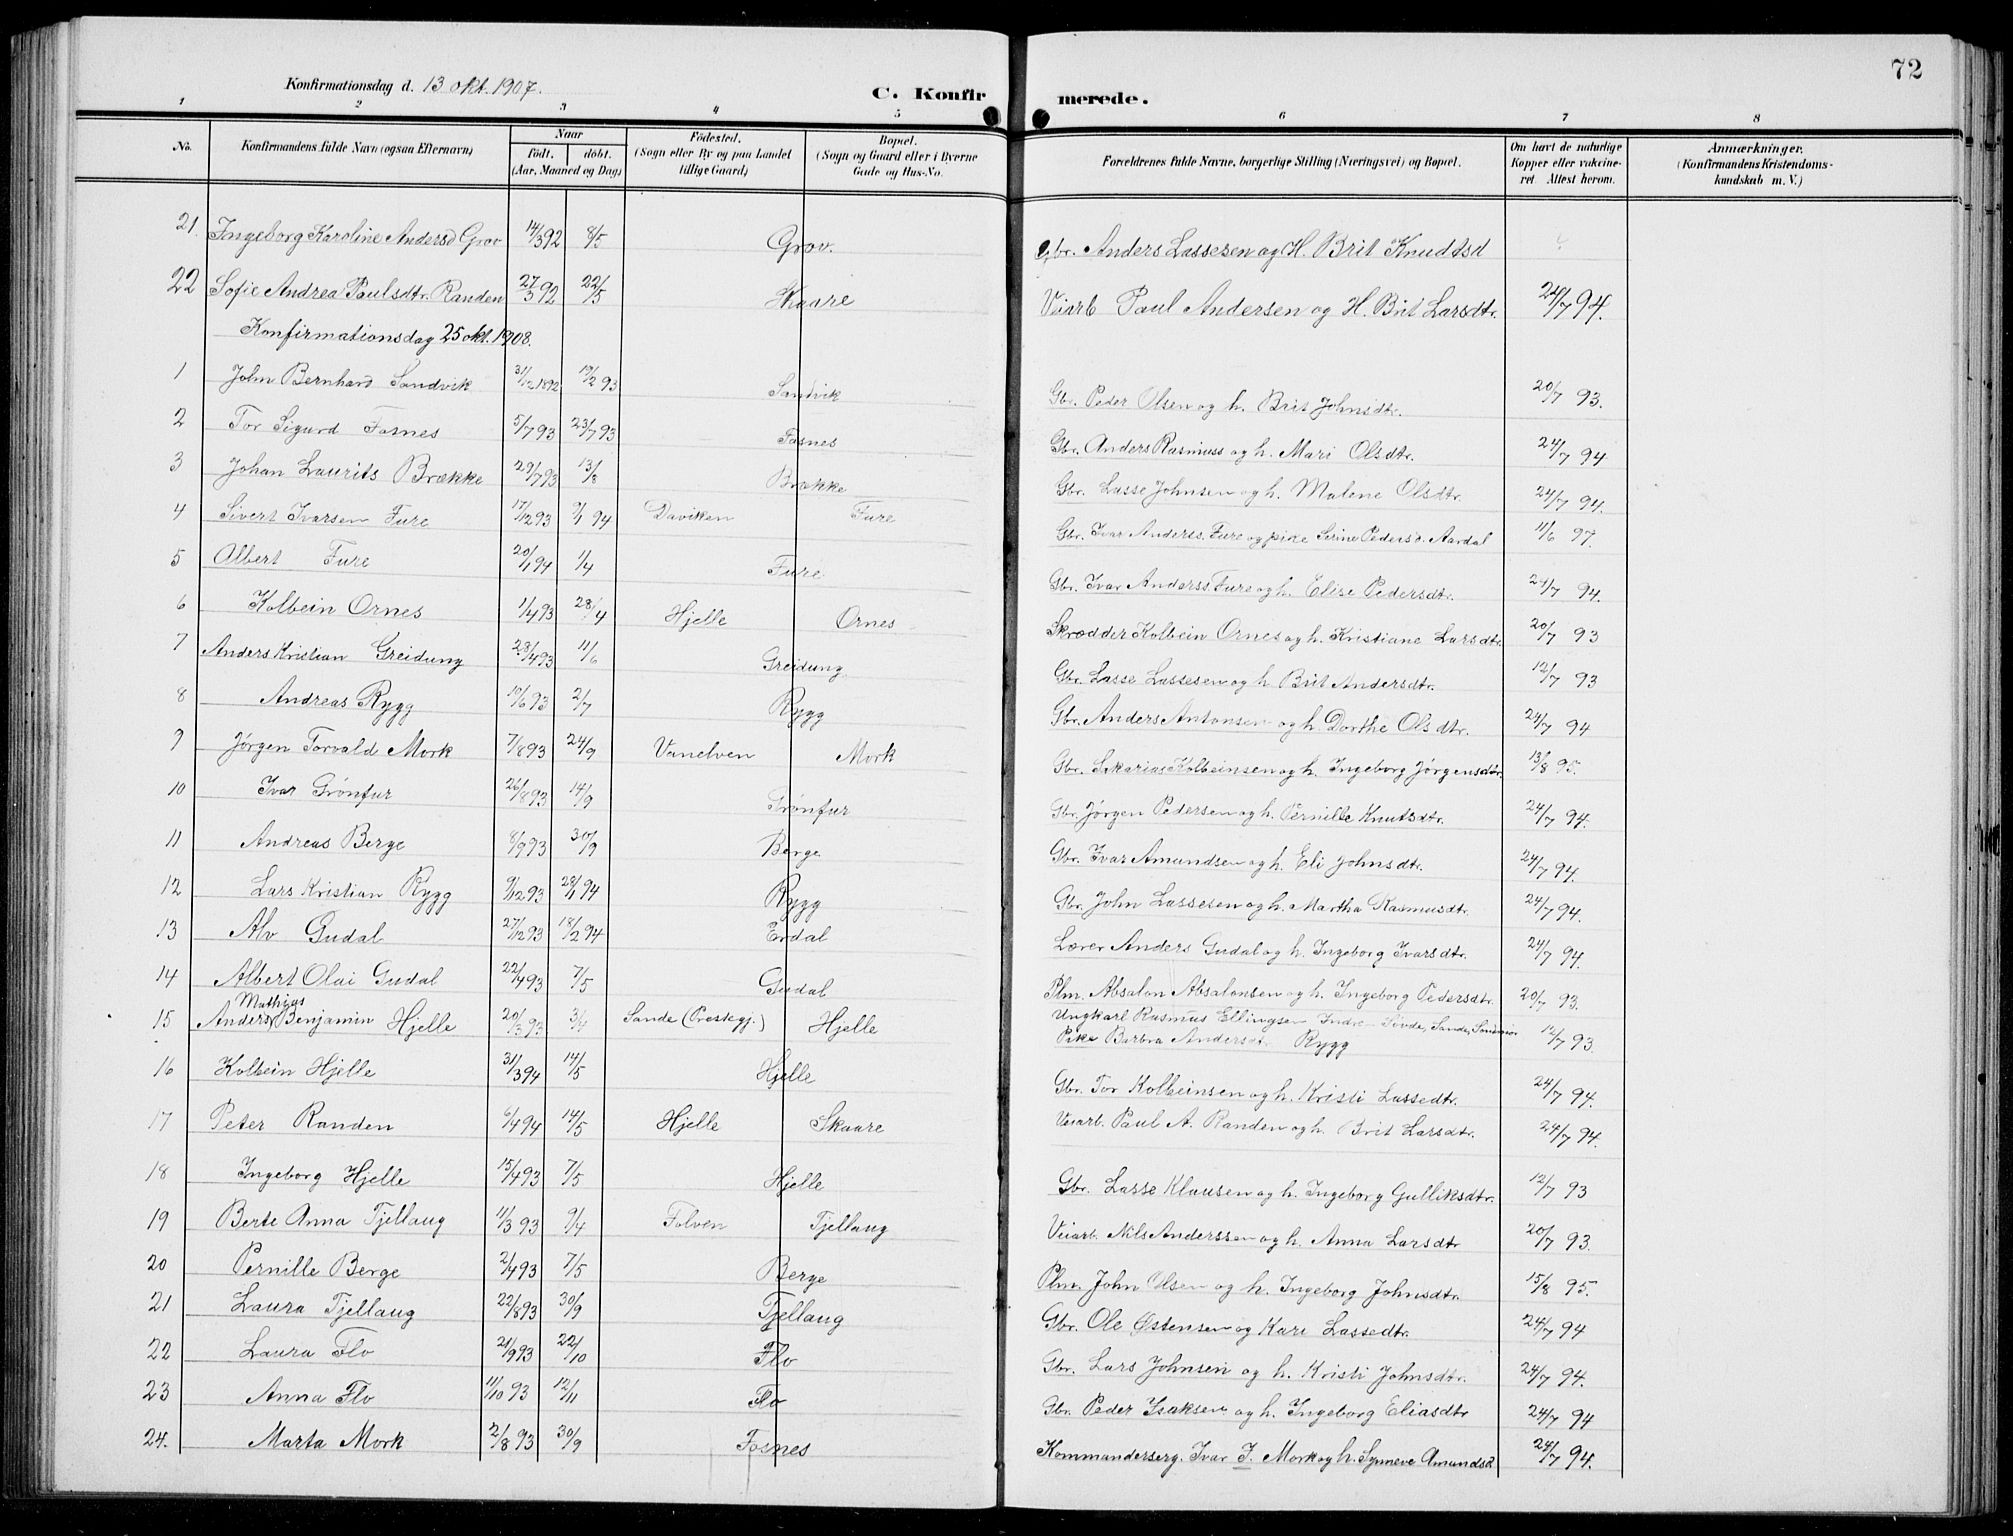 72
Konfirmationsdag d. 13 okt. 1907.
C. Konfirmerede.
1 2 3 4 5 6 7 8
No. Konfirmandens fulde Navn (ogsaa Efternavn) Naar födt. döbt. (Aar, Maaned og Dag) Födested. (Sogn eller By og paa Landet tillige Gaard) Bopæl. (Sogn og Gaard eller i Byerne Gade og Hus-No. Forældrenes fulde Navne, borgerlige Stilling (Næringsvei) og Bopæl. Om havt de naturlige Kopper eller vakcineret. Attest herom. Anmærkninger. (Konfirmandens Kristendomskundskab m. V.)
21. Ingeborg Karoline Andersd Grov 14/3 92 8/5 Grov. Gbr. Anders Lassesen og H. Brit Knudtsd
22 Sofie Andrea Paulsdtr. Randen 27/3 92 22/5 Skaare Veiarb Paul Andersen og H. Brit Larsdtr. 24/7 94.
Konfirmationsdag 25 okt. 1908.
1 John Bernhard Sandvik 31/12 1892 19/2 93 Sandvik Gbr. Peder Olsen og h. Brit Johnsdtr. 20/7 93.
2 Tor Sigurd Fosnes 5/7 93 23/7 93 Fosnes Gbr. Anders Rasmuss og h. Mari Olsdtr. 24/7 94
3 Johan Laurits Brække 29/7 93 13/8 Brække Gbr. Lasse Johnsen og h. Malene Olsdtr. 24/7 94.
4 Sivert Ivarsen Fure 17/12 93 9/1 94 Daviken Fure Gbr. Ivar Anderss. Fure og pike Serine Pedersd. Aardal 11/6 97.
5 Albert Fure 20/1 94 1/4 Fure Gbr. Ivar Anderss Fure og h. Elise Pedersdtr. 24/7 94.
6 Kolbein Ornes 1/4 93 28/4 Hjelle Ornes Skrædder Kolbein Ornes og h. Kristiane Larsdtr 20/7 93
7 Anders Kristian Greidung 28/4 93 11/6 Greidung Gbr. Lasse Lassesen og h Brit Andersdtr. 12/7 93
8 Andreas Rygg 10/6 93 2/7 Rygg Gbr. Anders Antonsen og h. Dorthe Olsdtr. 24/7 94
9 Jørgen Torvald Mork 7/8 93 24/9 Vanelven Mork Gbr. Sakarias Kolbeinsen og h. Ingeborg Jørgensdtr 13/8 95.
10 Ivar Grønfur 26/8 93 14/9 Grønfur Gbr. Jørgen Pedersen og h. Pernille Knutsdtr. 24/7 94.
11 Andreas Berge 8/9 93 30/9 Berge Gbr. Ivar Amundsen og h. Eli Johnsdtr. 24/7 94.
12 Lars Kristian Rygg 9/12 93 28/1 94 Rygg Gbr. John Lassesen og h. Martha Rasmusdtr. 24/7 94.
13 Alv Gudal 27/12 93 18/2 94 Erdal Lærer Anders Gudal og h. Ingeborg Ivarsdtr. 24/7 94.
14 Albert Olai Gudal 22/4 93 7/5 Gudal Plm. Absalon Absalonsen og h. Ingeborg Pedersdtr. 20/7 93.
15 Anders Mathias Benjamin Hjelle 20/3 93 3/4 Sande (Prestegj.) Hjelle Ungkarl Rasmus Ellingsen Indre Søvde, Sande, Søndmør 12/7 93.
Pike Barbra Andersd. Rygg
16 Kolbein Hjelle 31/3 94 14/5 Hjelle Gbr. Tor Kolbeinsen og h. Kristi Lassedtr. 24/7 94.
17 Peter Randen 6/4 94 14/5 Hjelle Skaare Veiarb. Paul A. Randen og h. Brit Larsdtr. 24/7 94.
18 Ingeborg Hjelle 15/4 93 7/5 Hjelle Gbr. Lasse Klausen og h. Ingeborg Gulliksdtr. 12/7 93
19 Berte Anna Tjellaug 11/3 93 9/4 Folven Tjellaug Veiarb. Nils Anderssen og h. Anna Larsdtr 20/7 93.
20 Pernille Berge 2/4 93 7/5 Berge Plm. John Olsen og h. Ingeborg Johnsdtr. 15/8 95.
21 Laura Tjellaug 22/8 93 30/9 Tjellaug Gbr. Ole Østensen og Kari Lassedtr. 24/7 94
22 Laura Flo 21/9 93 22/10 Flo Gbr. Lars Johnsen og h. Kristi Johnsdtr. 24/7 94.
23 Anna Flo 11/10 93 12/11 Flo Gbr. Peder Isaksen og h. Ingeborg Eliasdtr 24/7 94
24. Marta Mork 2/8 93 30/9 Fosnes Kommandersерg. Ivar J. Mork og h. Synneve Amundsd. 24/7 94.